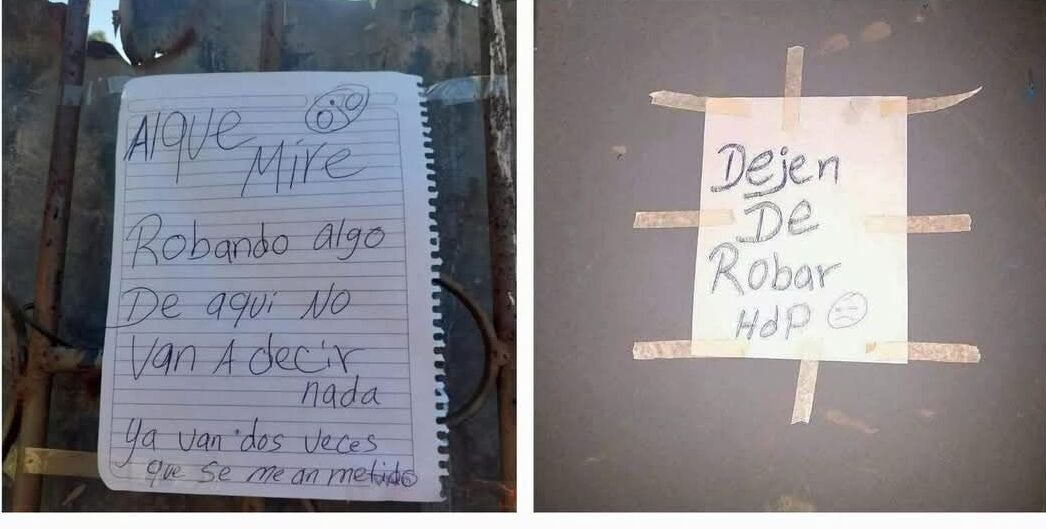 Al que
Mire
Robando algo
De aqui No
Van A decir
nada
Ya van dos veces
que se me an metido
Dejen
De
Robar
HdP